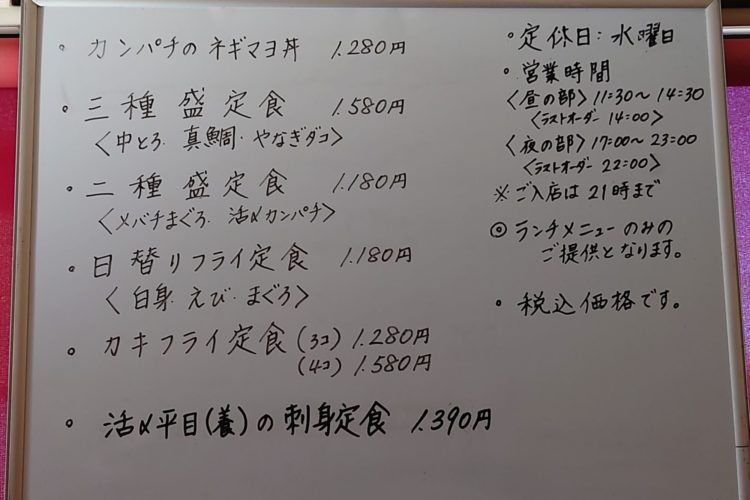 ・カンパチの ネギマヨ丼 1.280円
・三種盛定食 1.580円
〈中とろ.真鯛.やなぎダコ〉
・二種盛定食 1.180円
〈メバチまぐろ.活〆カンパチ〉
・日替りフライ定食 1.180円
〈白身.えび.まぐろ〉
。カキフライ定食 (3コ) 1.280円
(4コ) 1.580円
。活〆平目(養)の刺身定食 1.390円
・定休日:水曜日
・営業時間
〈昼の部〉11:30〜14:30
〈ラストオーダー 14:00〉
〈夜の部〉17:00〜23:00
〈ラストオーダー 22:00〉
※ご入店は21時まで
◎ランチメニューのみの
ご提供となります。
・税込価格です。